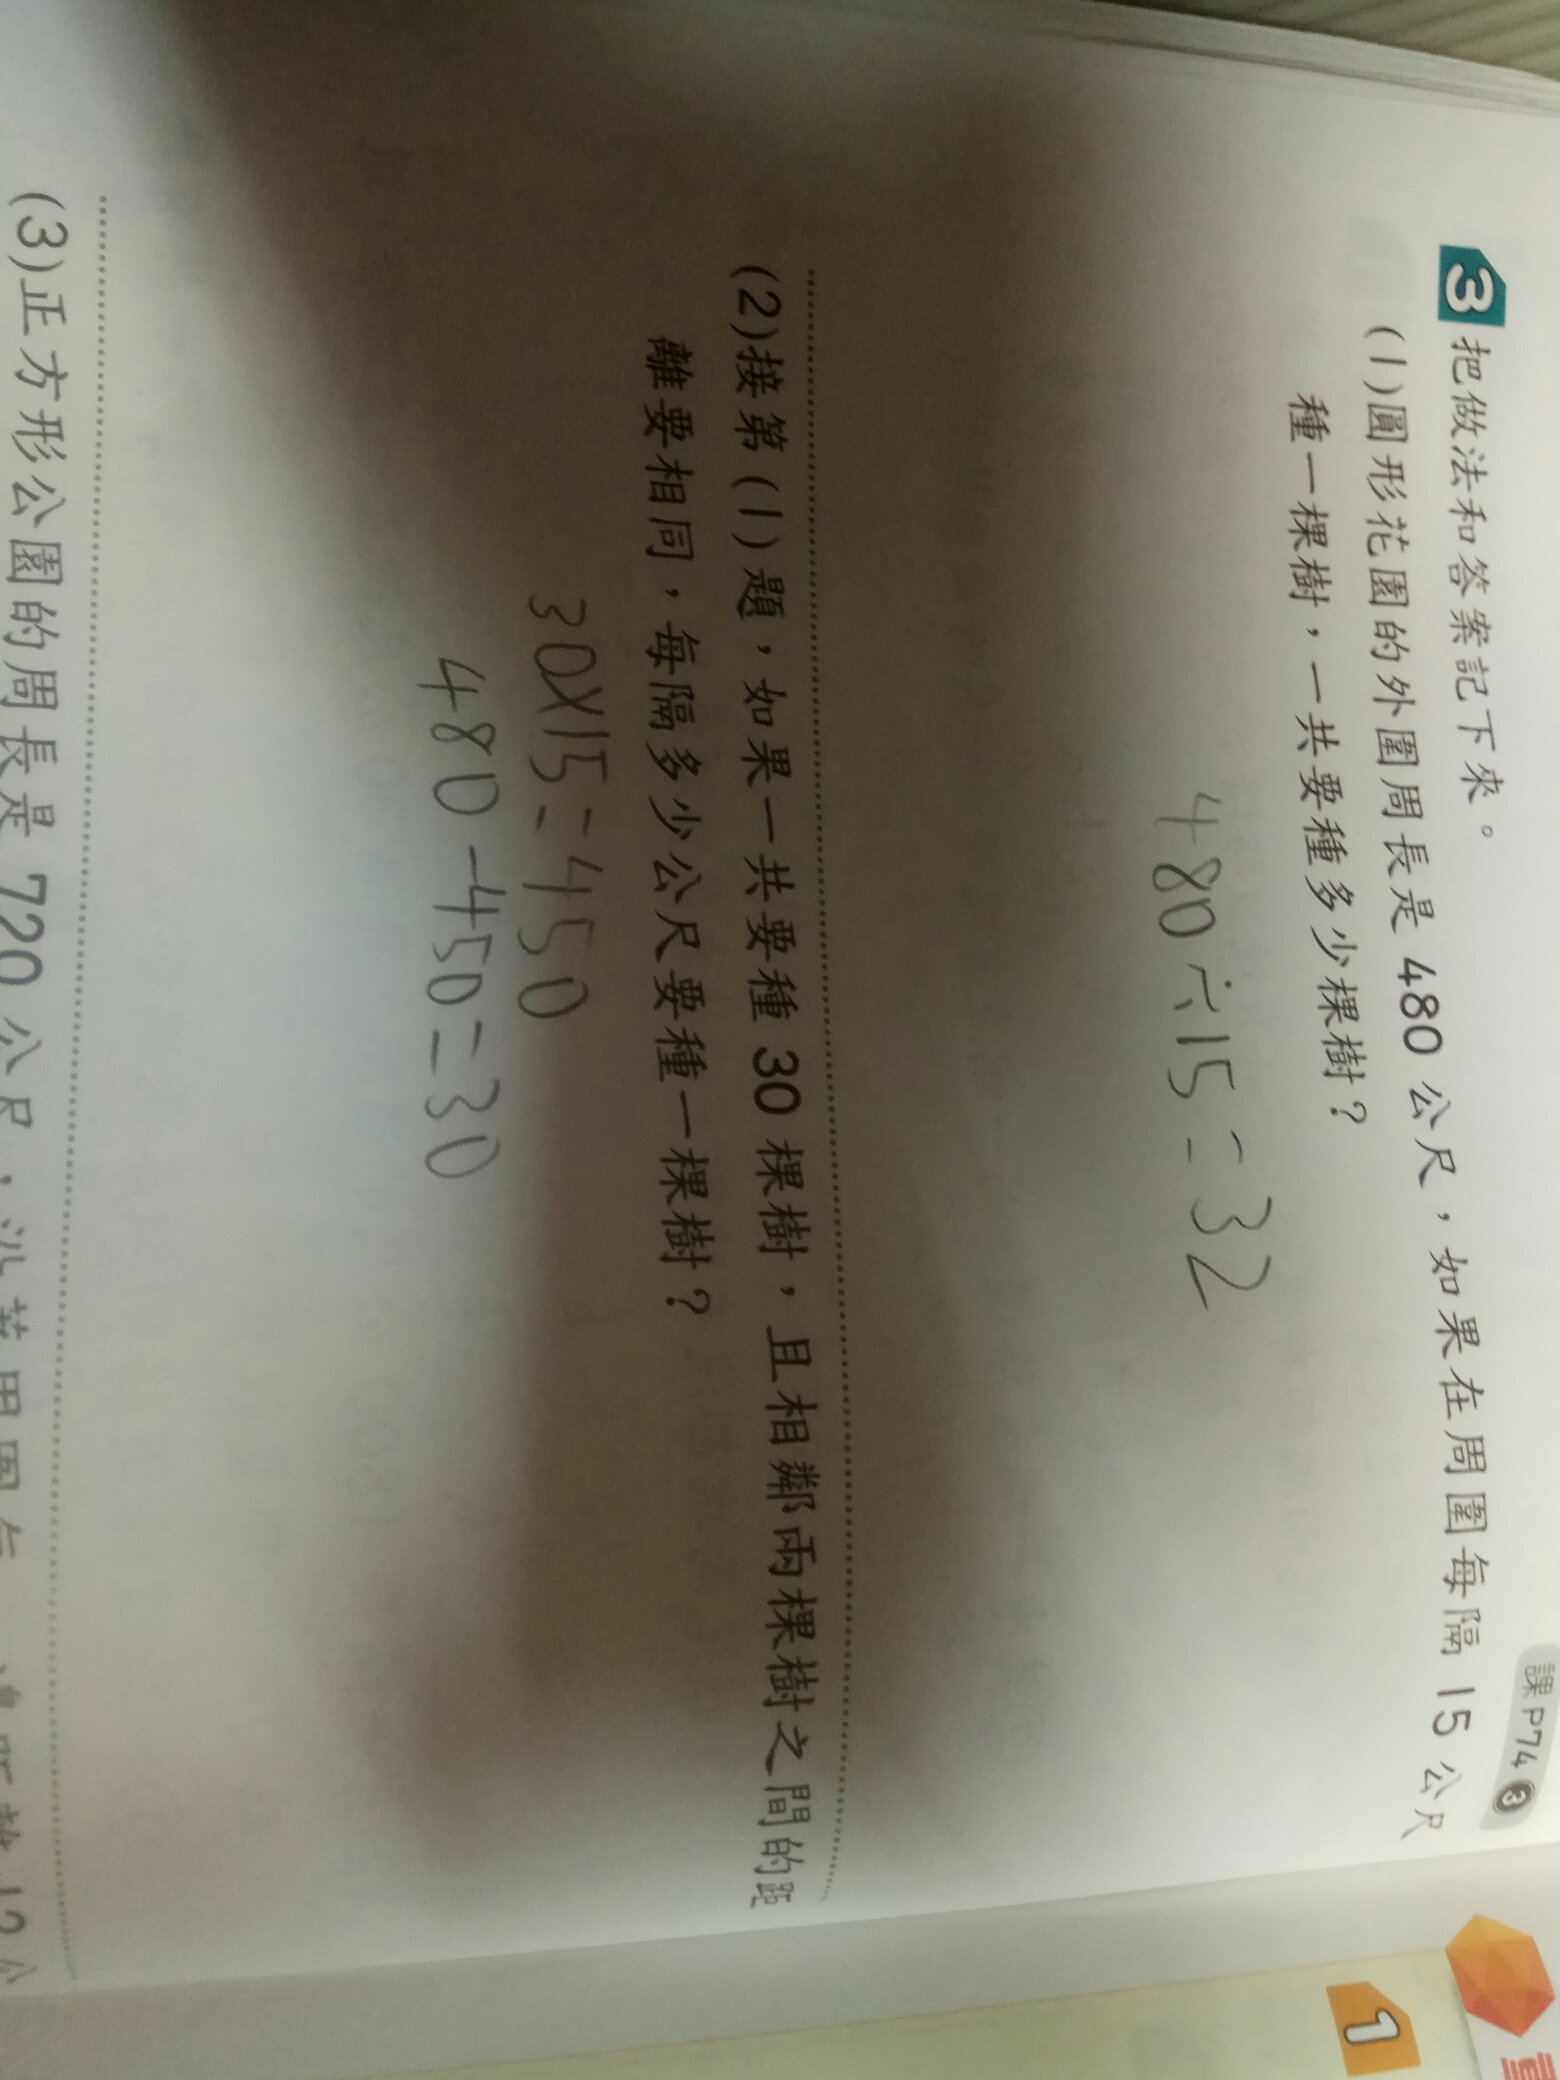 課P74 3
3 把做法和答案記下來。
(1)圓形花園的外圍周長是 480 公尺，如果在周圍每隔 15 公尺
種一棵樹，一共要種多少棵樹？
480÷15=32
(2)接第(1)題，如果一共要種 30 棵樹，且相鄰兩棵樹之間的距
離要相同，每隔多少公尺要種一棵樹？
30×15=450
480-450=30
(3)正方形公園的周長是 720 公尺，沿著周圍
1